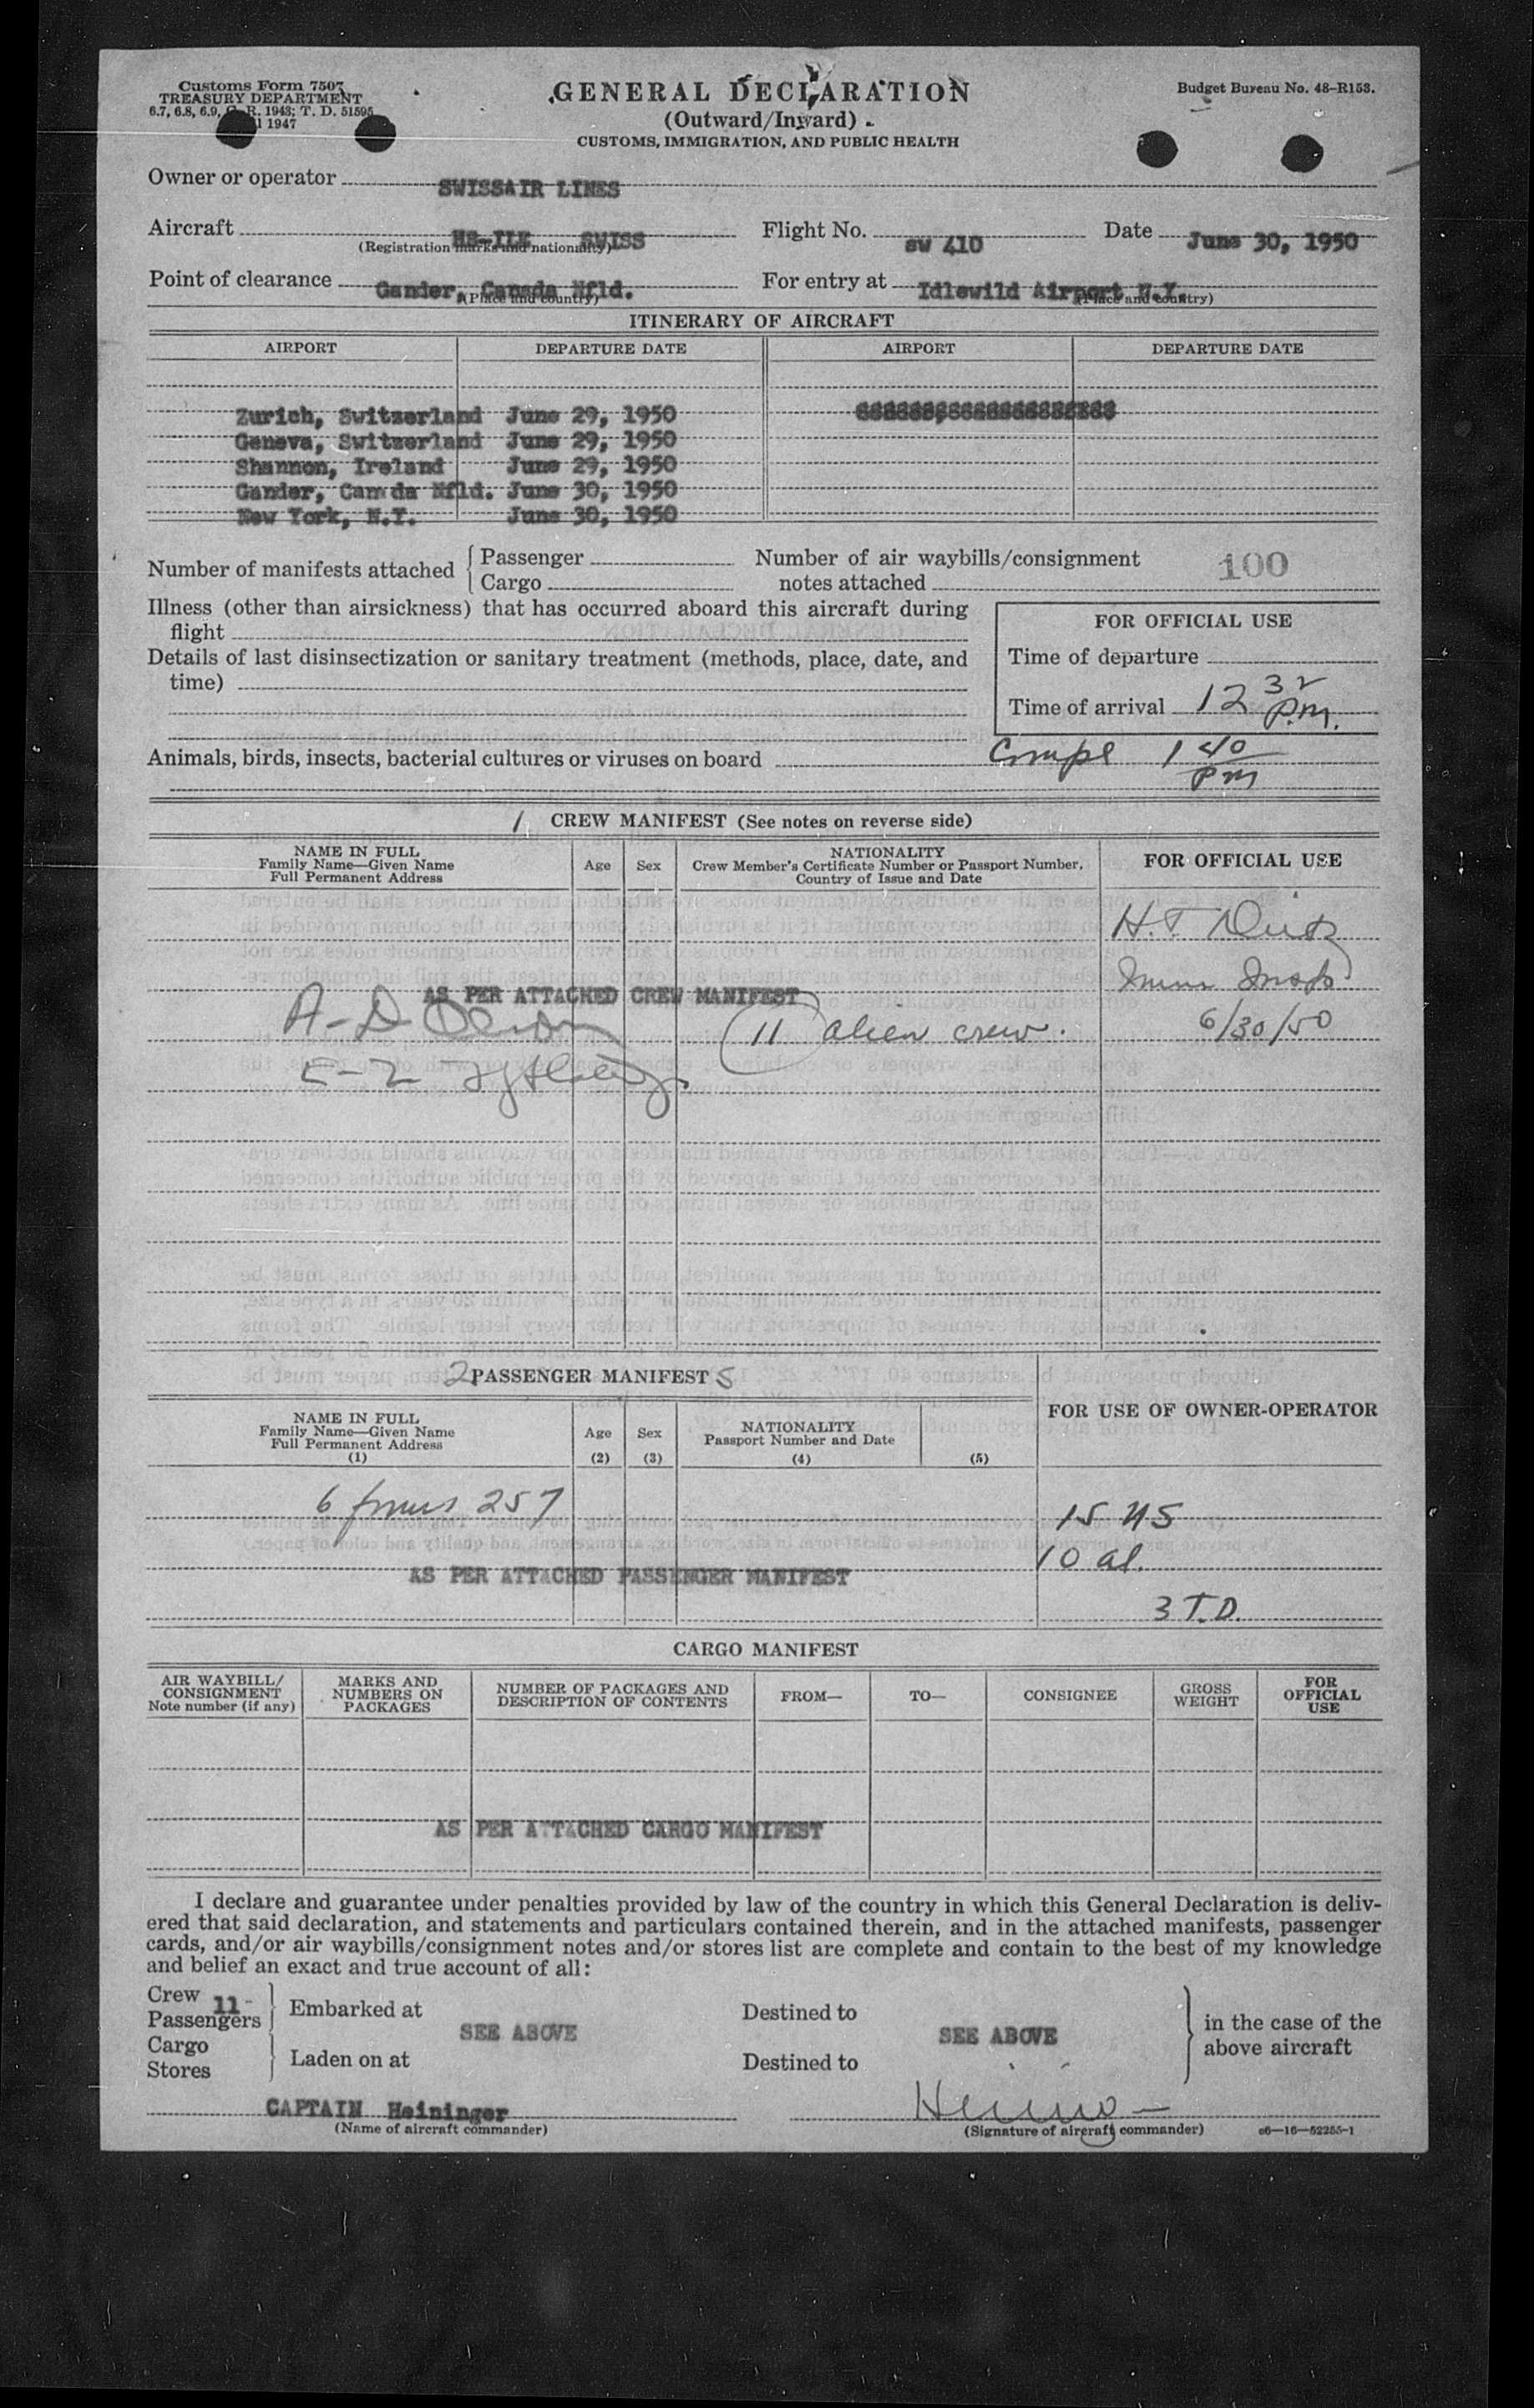 Customs Form 7507
TREASURY DEPARTMENT
6.7, 6.8, 6.9, C. R. 1943; T. D. 51595
1947
GENERAL DECLARATION
(Outward/Inward)
CUSTOMS, IMMIGRATION, AND PUBLIC HEALTH
Budget Bureau No. 48-R153.
Owner or operator SWISSAIR LINES
Aircraft HB-ILE SWISS Flight No. sw 410 Date June 30, 1950
(Registration marks and nationality)
Point of clearance Gander, Canada Nfld. For entry at Idlewild Airport N.Y.
(Place and country) (Place and country)
ITINERARY OF AIRCRAFT
AIRPORT DEPARTURE DATE AIRPORT DEPARTURE DATE
Zurich, Switzerland June 29, 1950
Geneva, Switzerland June 29, 1950
Shannon, Ireland June 29, 1950
Gander, Canada Nfld. June 30, 1950
New York, N.Y. June 30, 1950
Number of manifests attached { Passenger
Cargo
Number of air waybills/consignment
notes attached
100
Illness (other than airsickness) that has occurred aboard this aircraft during
flight
Details of last disinsectization or sanitary treatment (methods, place, date, and
time)
FOR OFFICIAL USE
Time of departure
Time of arrival 12 32 P.M.
Animals, birds, insects, bacterial cultures or viruses on board
Compl 1 40 PM
1 CREW MANIFEST (See notes on reverse side)
NAME IN FULL
Family Name—Given Name
Full Permanent Address
Age Sex
NATIONALITY
Crew Member's Certificate Number or Passport Number,
Country of Issue and Date
FOR OFFICIAL USE
H.T.
Imm Insp
6/30/50
AS PER ATTACHED CREW MANIFEST
(11) alien crew.
2 PASSENGER MANIFEST S
NAME IN FULL
Family Name—Given Name
Full Permanent Address
(1)
Age
(2)
Sex
(3)
NATIONALITY
Passport Number and Date
(4)
(5)
FOR USE OF OWNER-OPERATOR
6 forms 257
15 US
10 al.
AS PER ATTACHED PASSENGER MANIFEST
3 T.D.
CARGO MANIFEST
AIR WAYBILL/
CONSIGNMENT
Note number (if any)
MARKS AND
NUMBERS ON
PACKAGES
NUMBER OF PACKAGES AND
DESCRIPTION OF CONTENTS
FROM—
TO—
CONSIGNEE
GROSS
WEIGHT
FOR
OFFICIAL
USE
AS PER ATTACHED CARGO MANIFEST
I declare and guarantee under penalties provided by law of the country in which this General Declaration is deliv-
ered that said declaration, and statements and particulars contained therein, and in the attached manifests, passenger
cards, and/or air waybills/consignment notes and/or stores list are complete and contain to the best of my knowledge
and belief an exact and true account of all:
Crew 11
Passengers
Cargo
Stores
Embarked at
SEE ABOVE
Laden on at
Destined to
SEE ABOVE
Destined to
in the case of the
above aircraft
CAPTAIN Heininger
(Name of aircraft commander)
(Signature of aircraft commander)
c6—16—52255-1